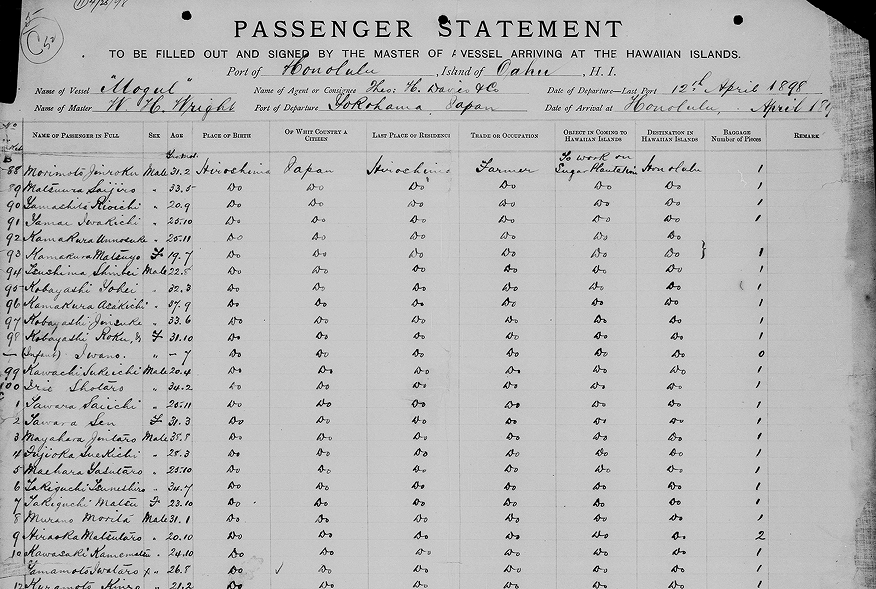 PASSENGER STATEMENT
TO BE FILLED OUT AND SIGNED BY THE MASTER OF A VESSEL ARRIVING AT THE HAWAIIAN ISLANDS.
Port of Honolulu, Island of Oahu, H. I.
Name of Vessel "Mogul" Name of Agent or Consignee Theo. H. Davies & Co Date of Departure—Last Port 12th April 1898
Name of Master W. H. Wright Port of Departure Yokohama Japan Date of Arrival at Honolulu, April 189
NAME OF PASSENGER IN FULL SEX AGE PLACE OF BIRTH OF WHAT COUNTRY A CITIZEN LAST PLACE OF RESIDENCE TRADE OR OCCUPATION OBJECT IN COMING TO HAWAIIAN ISLANDS DESTINATION IN HAWAIIAN ISLANDS BAGGAGE Number of Pieces REMARK
88 Morimoto Jinroku Male 31.2 Hiroshima Japan Hiroshima Farmer To work on Sugar Plantation Honolulu 1
89 Matsuura Saijiro " 33.5 Do Do Do Do Do Do 1
90 Yamashita Rioichi " 20.9 Do Do Do Do Do Do 1
91 Yamai Iwakichi " 25.10 Do Do Do Do Do Do 1
92 Kamakura Unnosuke " 25.11 Do Do Do Do Do Do
93 Kamakura Matsuyo F 19.7 Do Do Do Do Do Do } 1
94 Tsushima Shinbei Male 22.8 Do Do Do Do Do Do 1
95 Kobayashi Yohei " 32.3 Do Do Do Do Do Do 1
96 Kamakura Asakichi " 37.9 Do Do Do Do Do Do 1
97 Kobayashi Jinsuke " 33.6 Do Do Do Do Do Do 1
98 Kobayashi Roku, & F 31.10 Do Do Do Do Do Do 1
— (Infant) Iwano. " – 7 Do Do Do Do Do Do 0
99 Kawachi Sukeichi Male 20.4 Do Do Do Do Do Do 1
100 Irie Shotaro " 34.2 Do Do Do Do Do Do 1
1 Tawara Saiichi " 25.11 Do Do Do Do Do Do 1
2 Tawara Sen F 31.3 Do Do Do Do Do Do 1
3 Mayahara Jintaro Male 38.8 Do Do Do Do Do Do 1
4 Fujioka Suekichi " 28.3 Do Do Do Do Do Do 1
5 Maehara Yasutaro " 25.10 Do Do Do Do Do Do 1
6 Takiguchi Tsuneshiro " 34.7 Do Do Do Do Do Do 1
7 Takiguchi Matsu F 23.10 Do Do Do Do Do Do 1
8 Murano Morita Male 31.1 Do Do Do Do Do Do 1
9 Hiraoka Matsutaro " 20.10 Do Do Do Do Do Do 2
10 Kawasaki Kamematsu " 24.10 Do Do Do Do Do Do 1
Yamamoto Iwataro " 26.8 Do Do Do Do Do Do 1
12 Kuramoto Kinzo " 21.2 Do Do Do Do Do Do 1